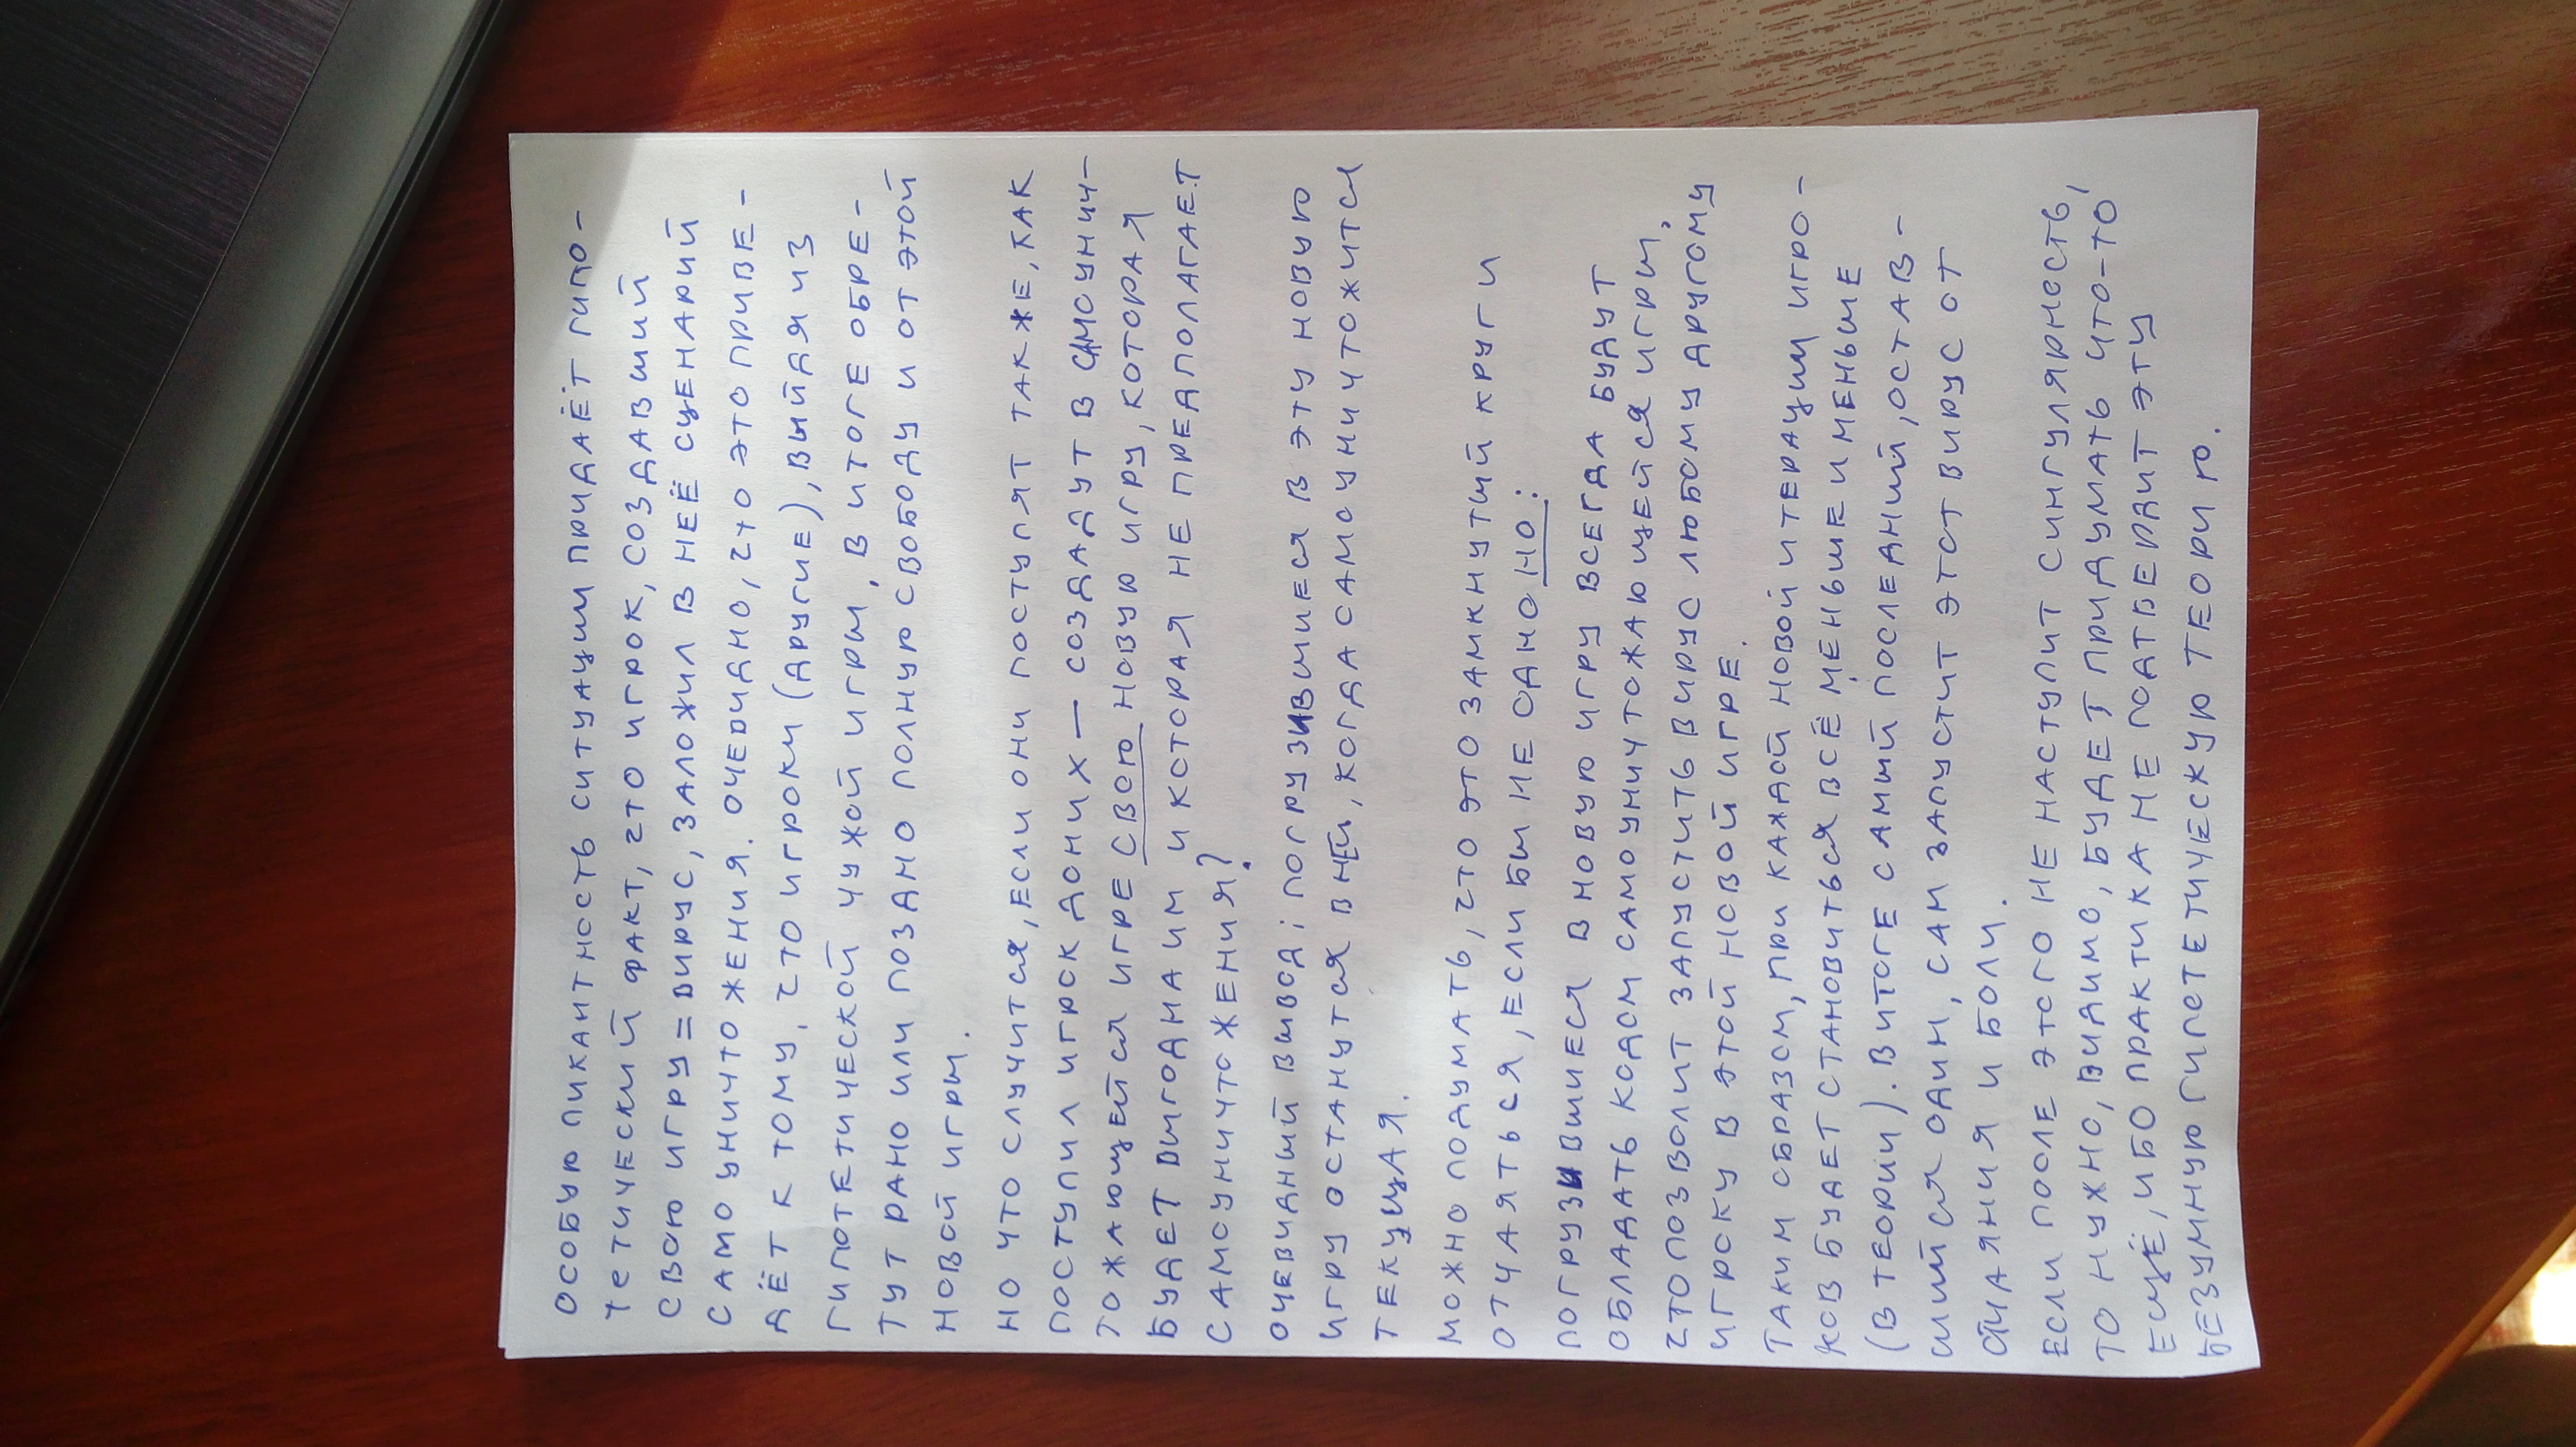 ОСОБУЮ ПИКАНТНОСТЬ СИТУАЦИИ ПРИДАЁТ ГИПО-
ТЕТИЧЕСКИЙ ФАКТ, ЧТО ИГРОК, СОЗДАВШИЙ
СВОЮ ИГРУ = ВИРУС, ЗАЛОЖИЛ В НЕЁ СЦЕНАРИЙ
САМОУНИЧТОЖЕНИЯ. ОЧЕВИДНО, ЧТО ЭТО ПРИВЕ-
ДЁТ К ТОМУ, ЧТО ИГРОКИ (ДРУГИЕ), ВЫЙДЯ ИЗ
ГИПОТЕТИЧЕСКОЙ ЧУЖОЙ ИГРЫ, В ИТОГЕ ОБРЕ-
ТУТ РАНО ИЛИ ПОЗДНО ПОЛНУЮ СВОБОДУ И ОТ ЭТОЙ
НОВОЙ ИГРЫ.
НО ЧТО СЛУЧИТСЯ, ЕСЛИ ОНИ ПОСТУПЯТ ТАК ЖЕ, КАК
ПОСТУПИЛ ИГРОК ДО НИХ — СОЗДАДУТ В САМОУНИЧ-
ТОЖАЮЩЕЙСЯ ИГРЕ СВОЮ НОВУЮ ИГРУ, КОТОРАЯ
БУДЕТ ВЫГОДНА ИМ И КОТОРАЯ НЕ ПРЕДПОЛАГАЕТ
САМОУНИЧТОЖЕНИЯ?
ОЧЕВИДНЫЙ ВЫВОД: ПОГРУЗИВШИЕСЯ В ЭТУ НОВУЮ
ИГРУ ОСТАНУТСЯ В НЕЙ, КОГДА САМОУНИЧТОЖИТСЯ
ТЕКУЩАЯ.
МОЖНО ПОДУМАТЬ, ЧТО ЭТО ЗАМКНУТЫЙ КРУГ И
ОТЧАЯТЬСЯ, ЕСЛИ БЫ НЕ ОДНО НО:
ПОГРУЗИВШИЕСЯ В НОВУЮ ИГРУ ВСЕГДА БУДУТ
ОБЛАДАТЬ КОДОМ САМОУНИЧТОЖАЮЩЕЙСЯ ИГРЫ,
ЧТО ПОЗВОЛИТ ЗАПУСТИТЬ ВИРУС ЛЮБОМУ ДРУГОМУ
ИГРОКУ В ЭТОЙ НОВОЙ ИГРЕ.
ТАКИМ ОБРАЗОМ, ПРИ КАЖДОЙ НОВОЙ ИТЕРАЦИИ ИГРО-
КОВ БУДЕТ СТАНОВИТЬСЯ ВСЁ МЕНЬШЕ И МЕНЬШЕ
(В ТЕОРИИ). В ИТОГЕ САМЫЙ ПОСЛЕДНИЙ, ОСТАВ-
ШИЙСЯ ОДИН, САМ ЗАПУСТИТ ЭТОТ ВИРУС ОТ
ОТЧАЯНИЯ И БОЛИ.
ЕСЛИ ПОСЛЕ ЭТОГО НЕ НАСТУПИТ СИНГУЛЯРНОСТЬ,
ТО НУЖНО, ВИДИМО, БУДЕТ ПРИДУМАТЬ ЧТО-ТО
ЕЩЁ, ИБО ПРАКТИКА НЕ ПОДТВЕРДИТ ЭТУ
БЕЗУМНУЮ ГИПОТЕТИЧЕСКУЮ ТЕОРИЮ.